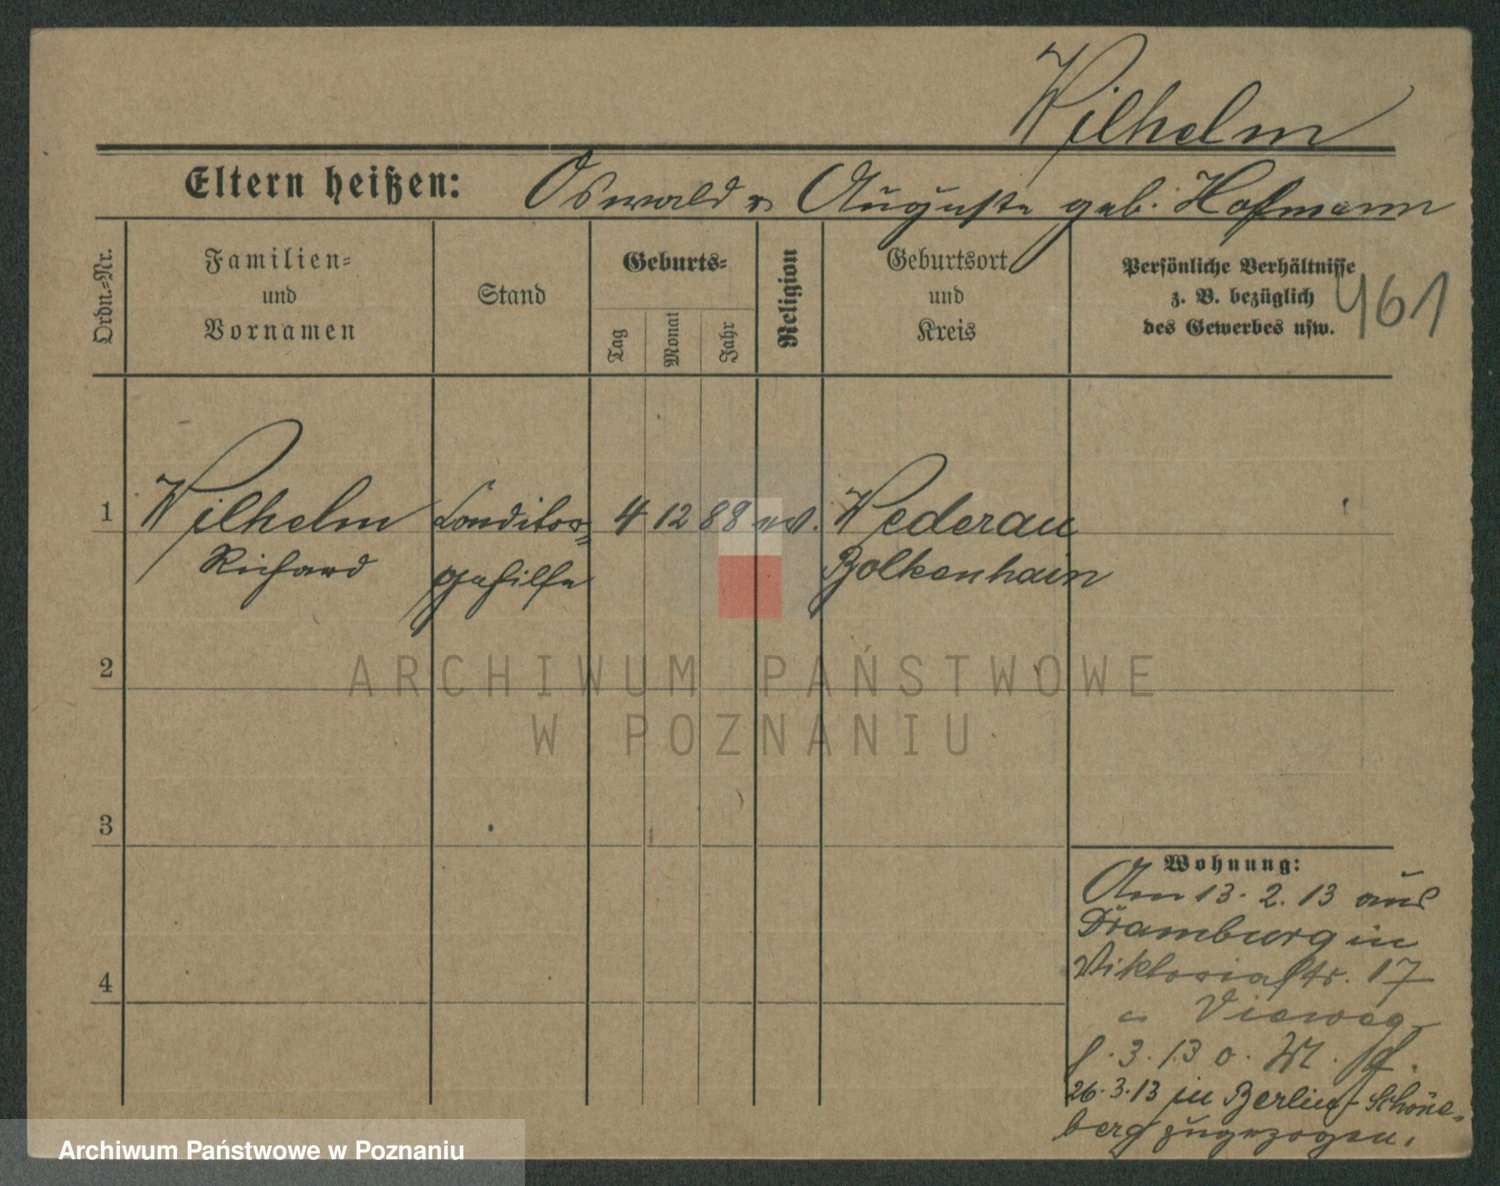 Wilhelm
Eltern heißen: Oswald u Auguste geb. Hofmann
Ordn.-Nr.
Familien-
und
Vornamen
Stand
Geburts-
Tag
Monat
Jahr
Religion
Geburtsort
und
Kreis
Persönliche Verhältnisse
z. B. bezüglich
des Gewerbes usw.
461
1 Wilhelm Conditor- 4 12 88 ev. Wederau
Richard gehilfe Bolkenhain
2
3
4
Wohnung:
Am 13. 2. 13 aus
Dramburg in
Viktoriastr. 17
Vieweg
3. 13 o.
26.3.13 in Berlin-Schöne-
berg zugezogen.
ARCHIWUM PAŃSTWOWE
W POZNANIU
Archiwum Państwowe w Poznaniu